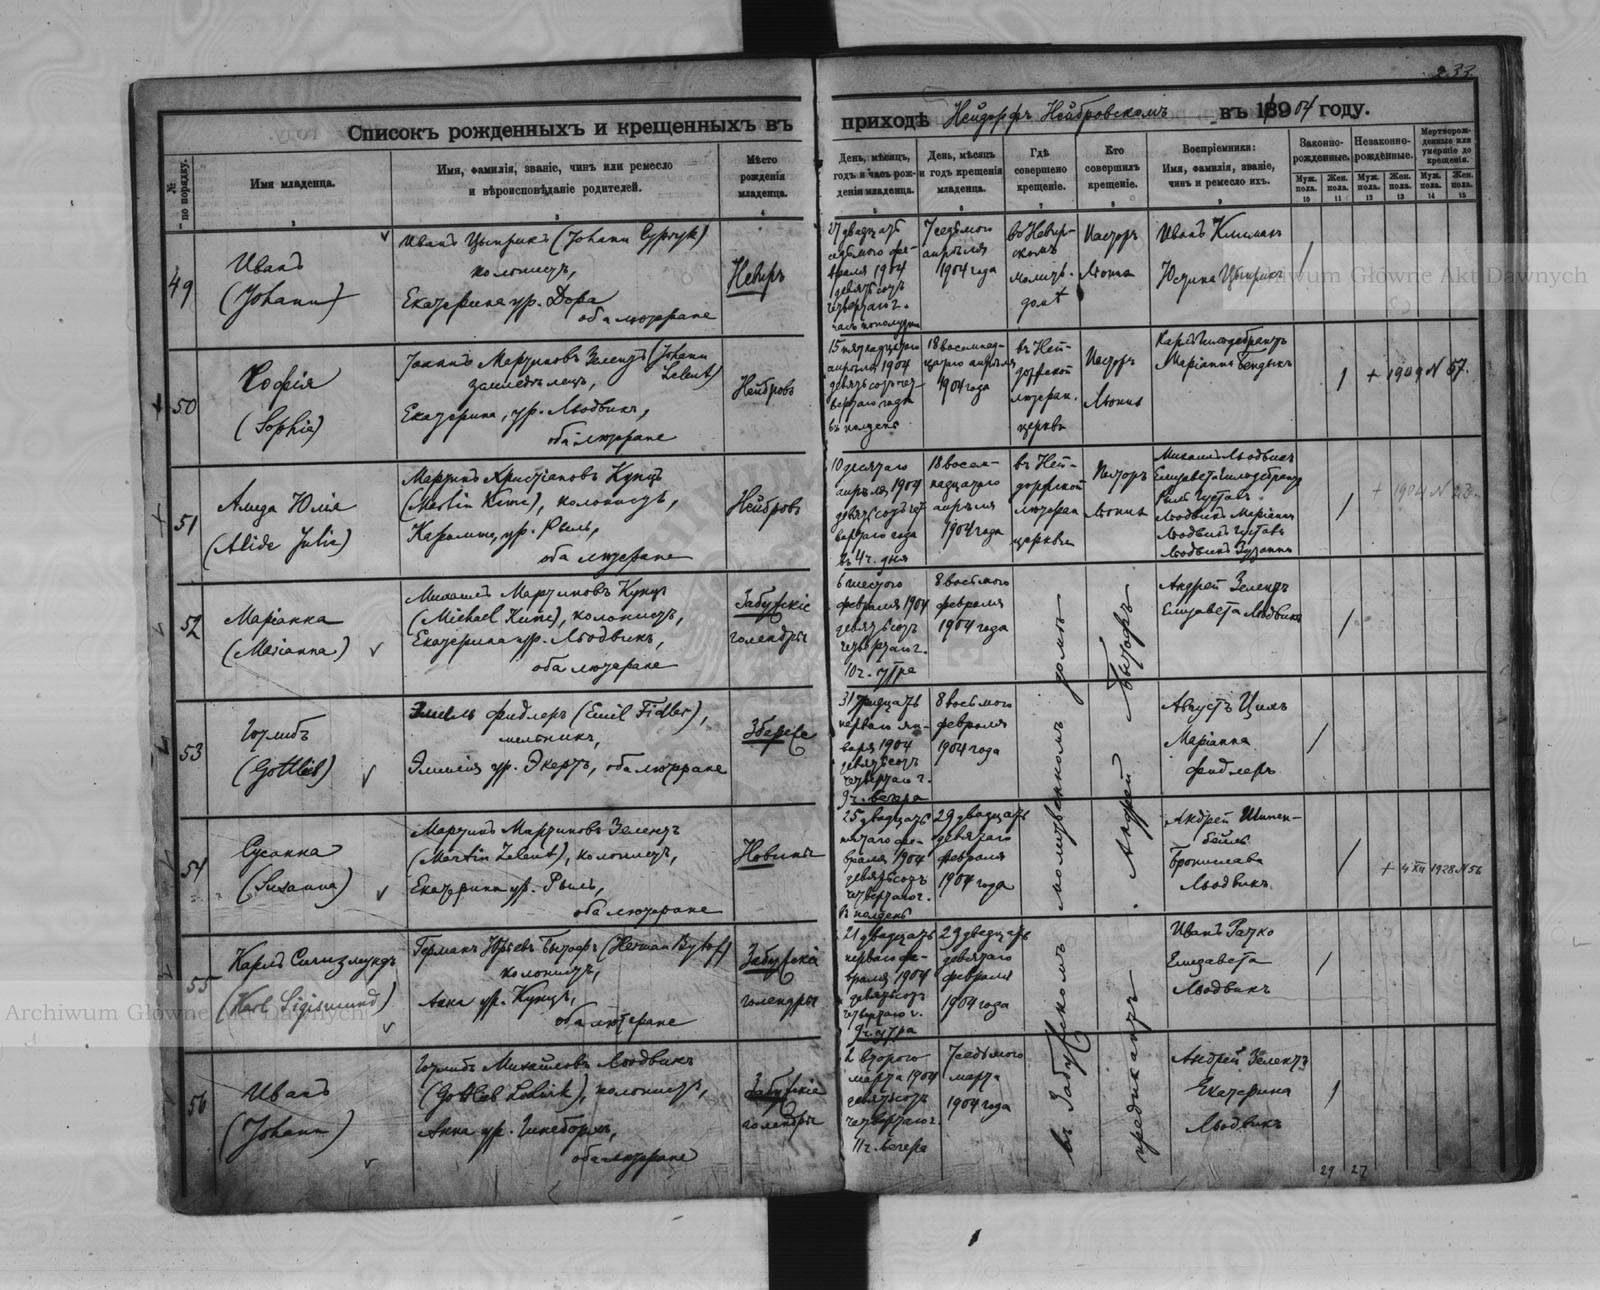 233
Списокъ рожденныхъ и крещенныхъ въ приходѣ Нейдорфъ Нейбровскомъ въ 1904 году.
№ по порядку.
Имя младенца.
Имя, фамилія, званіе, чинъ или ремесло и вѣроисповѣданіе родителей.
Мѣсто рожденія младенца.
День, мѣсяцъ, годъ и часъ рожденія младенца.
День, мѣсяцъ и годъ крещенія младенца.
Гдѣ совершено крещеніе.
Кто совершилъ крещеніе.
Воспріемники: Имя, фамилія, званіе, чинъ и ремесло ихъ.
Законнорожденные.
Незаконнорожденные.
Мертворожденные или умершіе до крещенія.
Муж. пола.
Жен. пола.
Муж. пола.
Жен. пола.
Муж. пола.
Жен. пола.
1 2 3 4 5 6 7 8 9 10 11 12 13 14 15
49
Иванъ
(Johann)
Иванъ Цыприкъ (Johann Cypryk)
колонистъ,
Екатерина ур. Дора
оба лютеране
Невиръ
27 двадцать
седьмого фе-
враля 1904
девятьсотъ
четвертаго г.
часъ пополудни
7 седьмого
апрѣля
1904 года
въ Невир-
скомъ
молитв.
домѣ
Пасторъ
Иванъ Климакъ
Юстина Цыприкъ
50
Софія
(Sophie)
Іоганъ Мартиновъ Зелентъ (Johann Zelent)
земледѣлецъ,
Екатерина, ур. Людвикъ,
оба лютеране
Нейбровъ
15 пятнадцатаго
апрѣля 1904
девятьсотъ чет-
вертаго года
въ полдень
18 восемнад-
цатаго апрѣля
1904 года
въ Ней-
дорфской
лютеран.
церкви
Пасторъ
Карлъ Гильдебрантъ
Маріанна Бендыкъ
+ 1909 № 57.
51
Алида Юлія
(Alide Julie)
Мартинъ Христіановъ Кунцъ
(Martin Kunc), колонистъ,
Каролина, ур. Рыль,
оба лютеране
Нейбровъ
10 десятаго
апрѣля 1904
девятьсотъ чет-
вертаго года
въ 4 ч. дня
18 восем-
надцатаго
апрѣля
1904 года
въ Ней-
дорфской
лютеран
церкви
Пасторъ
Михаилъ Людвикъ
Елизавета Гильдебрантъ
Рыль Густавъ
Людвикъ Маріанна
Людвикъ Густавъ
Людвикъ Зузанна
52
Маріанна
(Marianna)
Михаилъ Мартиновъ Кунцъ
(Michael Kunc), колонистъ,
Екатерина ур. Людвикъ,
оба лютеране
Забужскіе
голендры
6 шестого
февраля 1904
девятьсотъ
четвертаго г.
10 ч. утра
8 восьмого
февраля
1904 года
Андрей Зелентъ
Елизавета Людвикъ
53
Готлибъ
(Gottlieb)
Эмиль Фидлеръ (Emil Fidler),
мельникъ,
Эмилія ур. Экертъ, оба лютеране
Збереже
31 тридцать
перваго ян-
варя 1904
девятьсотъ
четвертаго г.
9 ч. вечера
8 восьмого
февраля
1904 года
Августъ Цихъ
Маріанна
Фидлеръ
54
Сусанна
(Susanna)
Мартинъ Мартиновъ Зелентъ
(Martin Zelent), колонистъ,
Екатерина ур. Рыль,
оба лютеране
Новины
25 двадцать
пятаго фе-
враля 1904
девятьсотъ
четвертаго г.
въ полдень
29 двадцать
девятаго
февраля
1904 года
Андрей
Бронислава
Людвикъ
+ 4 XII 1928 № 56
55
Карлъ Сигизмундъ
(Karl Sigismund)
Германъ Юрьевъ Бытофъ (Herman Bytoff)
колонистъ,
Анна ур. Кунцъ,
оба лютеране
Забужскіе
голендры
21 двадцать
перваго фе-
враля 1904
девятьсотъ
четвертаго г.
9 ч. утра
29 двадцать
девятаго
февраля
1904 года
Иванъ Рачко
Елизавета
Людвикъ
56
Иванъ
(Johann)
Готлибъ Михайловъ Людвикъ
колонистъ,
Анна ур. Гинеборхъ,
оба лютеране
Забужскіе
голендры
2 второго
марта 1904
девятьсотъ
четвертаго г.
11 ч. вечера
7 седьмого
марта
1904 года
въ Забужскомъ молитвенномъ домѣ
предикантъ Андрей Бытофъ
Андрей Зелентъ
Екатерина
Людвикъ
29 27
Archiwum Główne Akt Dawnych
Archiwum Główne Akt Dawnych